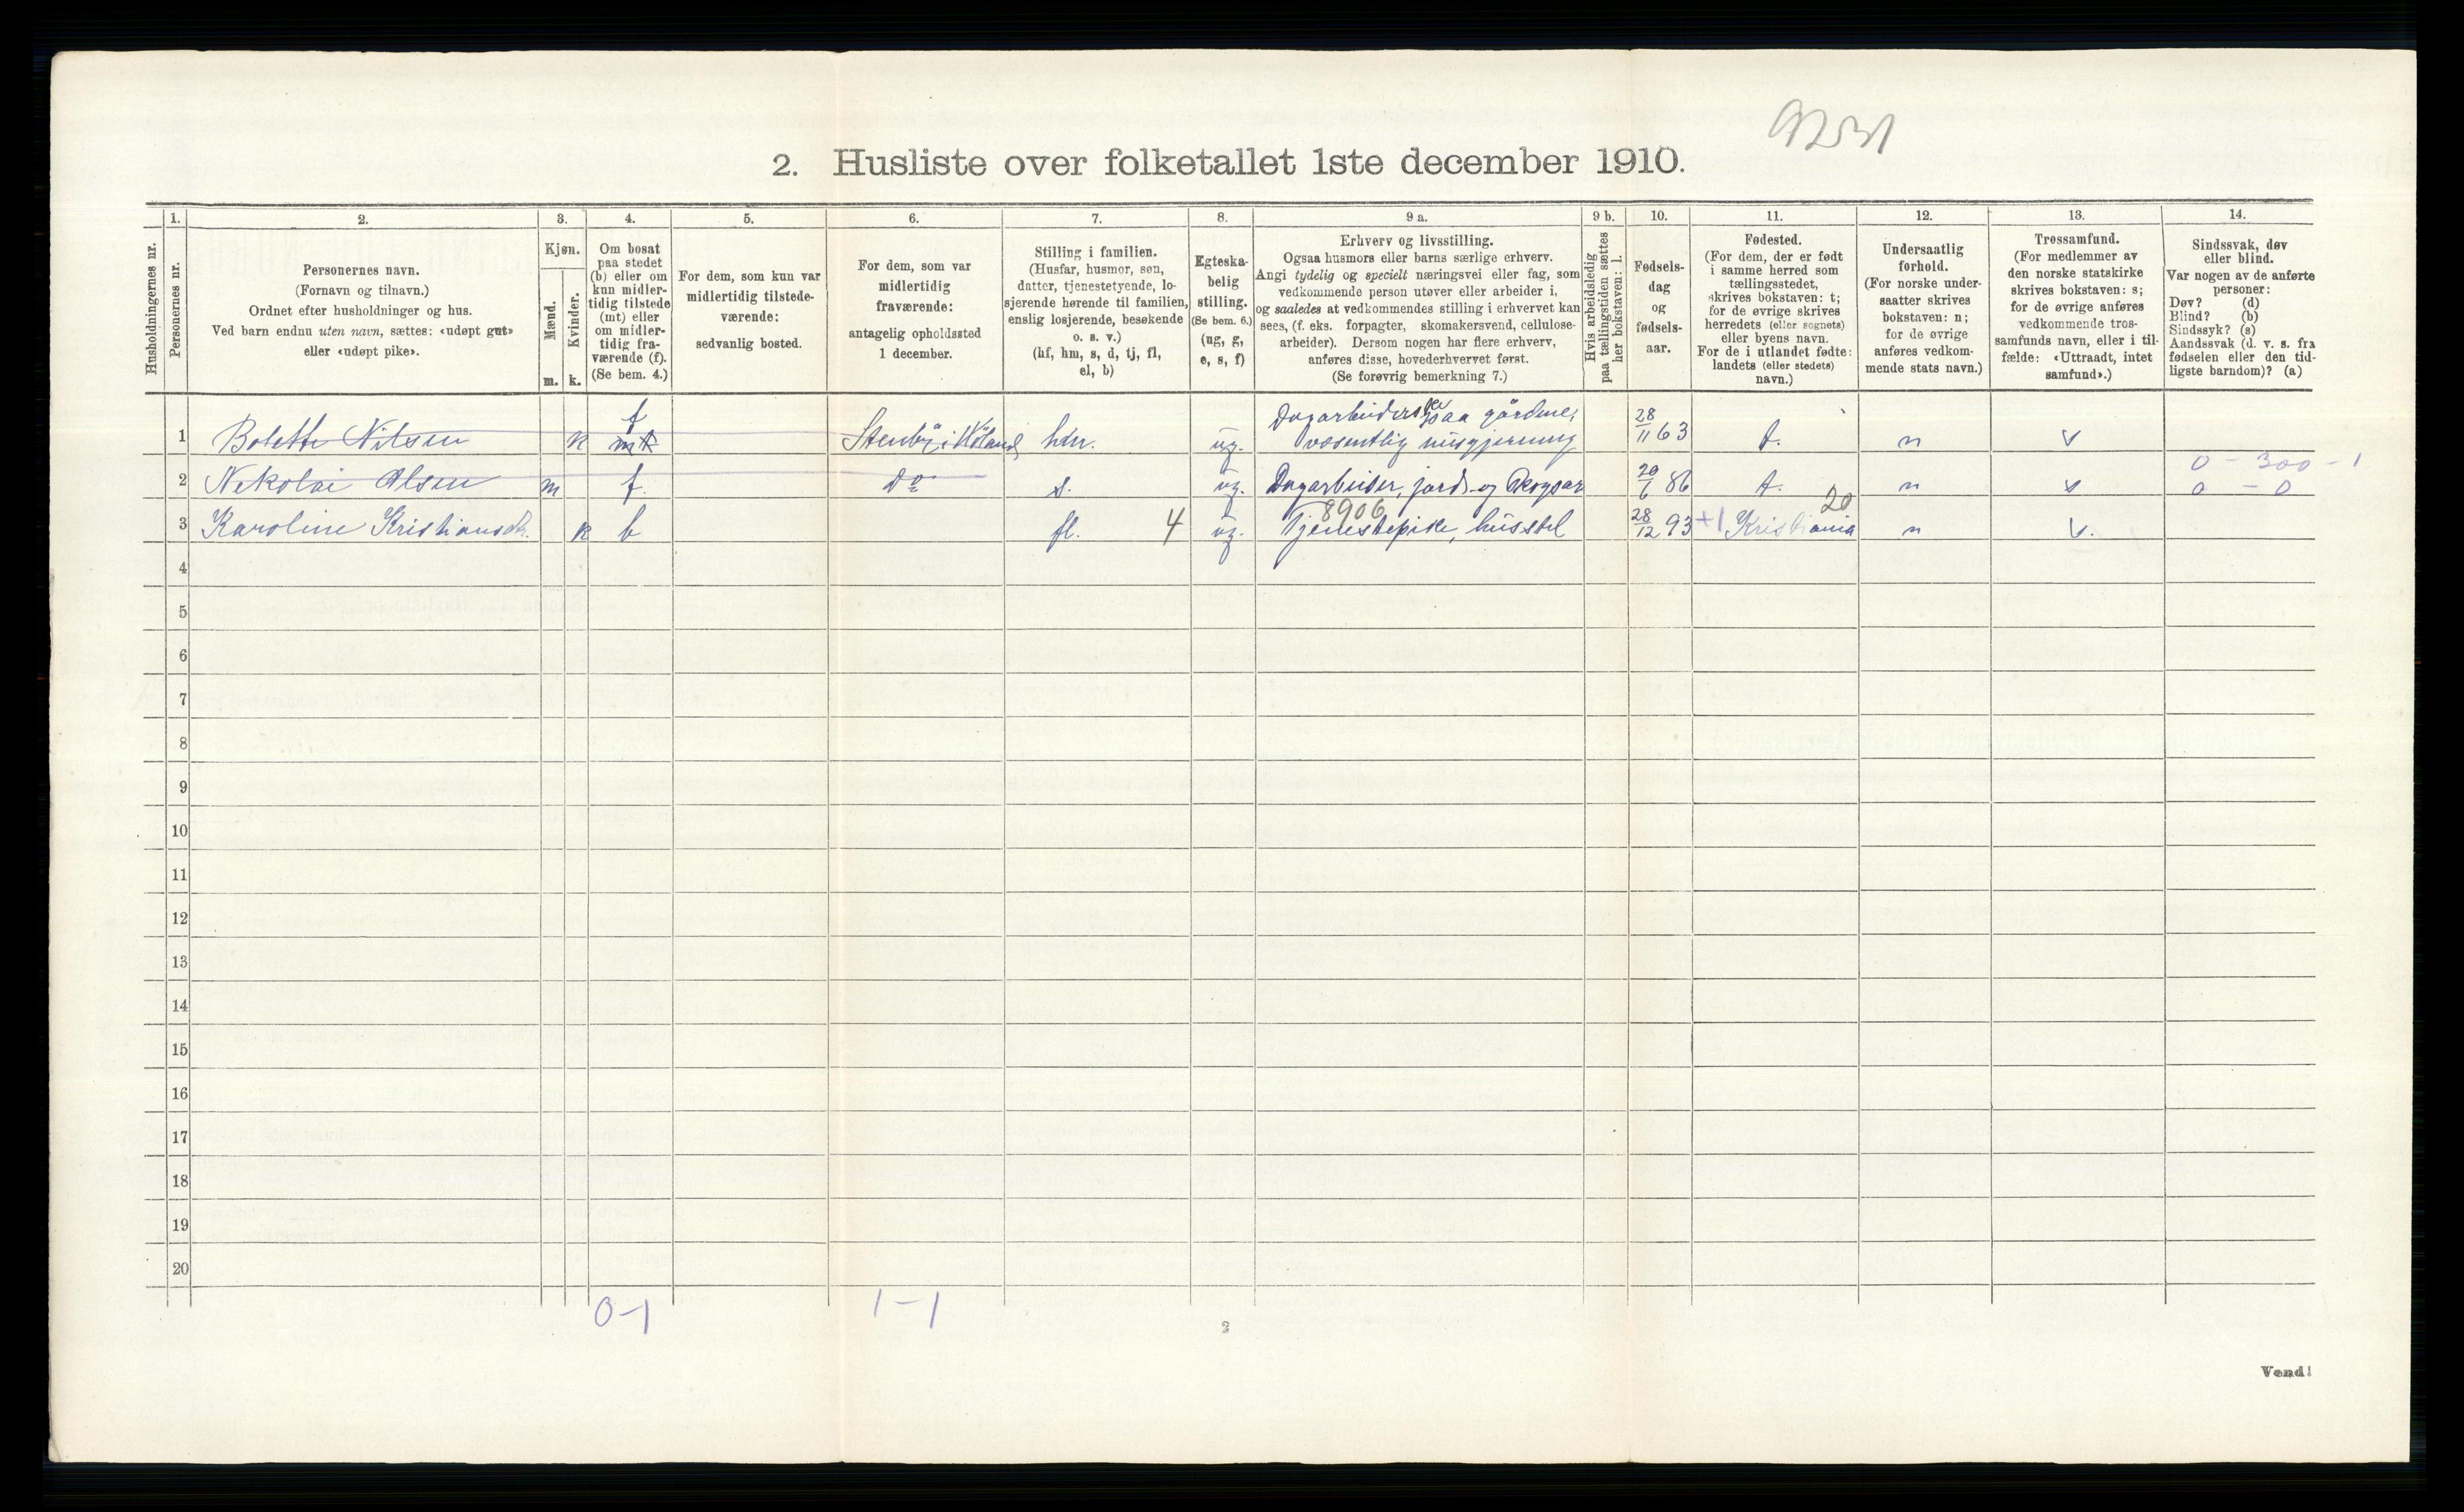 9231
2. Husliste over folketallet 1ste december 1910.
Husholdningernes nr.
1.
Personernes nr.
2.
Personernes navn.
(Fornavn og tilnavn.)
Ordnet efter husholdninger og hus.
Ved barn endnu uten navn, sættes: «udøpt gut»
eller «udøpt pike».
3.
Kjøn.
Mænd.
Kvinder.
m. k.
4.
Om bosat
paa stedet
(b) eller om
kun midler-
tidig tilstede
(mt) eller
om midler-
tidig fra-
værende (f).
(Se bem. 4.)
5.
For dem, som kun var
midlertidig tilstede-
værende:
sedvanlig bosted.
6.
For dem, som var
midlertidig
fraværende:
antagelig opholdssted
1 december.
7.
Stilling i familien.
(Husfar, husmor, søn,
datter, tjenestetyende, lo-
sjerende hørende til familien,
enslig losjerende, besøkende
o. s. v.)
(hf, hm, s, d, tj, fl,
el, b)
8.
Egteska-
belig
stilling.
(Se bem. 6.)
(ug, g,
e, s, f)
9 a.
Erhverv og livsstilling.
Ogsaa husmors eller barns særlige erhverv.
Angi tydelig og specielt næringsvei eller fag, som
vedkommende person utøver eller arbeider i,
og saaledes at vedkommendes stilling i erhvervet kan
sees, (f. eks. forpagter, skomakersvend, cellulose-
arbeider). Dersom nogen har flere erhverv,
anføres disse, hovederhvervet først.
(Se forøvrig bemerkning 7.)
9 b.
Hvis arbeidsledig
paa tællingstiden sættes
her bokstaven: l.
10.
Fødsels-
dag
og
fødsels-
aar.
11.
Fødested.
(For dem, der er født
i samme herred som
tællingsstedet,
skrives bokstaven: t;
for de øvrige skrives
herredets (eller sognets)
eller byens navn.
For de i utlandet fødte:
landets (eller stedets)
navn.)
12.
Undersaatlig
forhold.
(For norske under-
saatter skrives
bokstaven: n;
for de øvrige
anføres vedkom-
mende stats navn.)
13.
Trossamfund.
(For medlemmer av
den norske statskirke
skrives bokstaven: s;
for de øvrige anføres
vedkommende tros-
samfunds navn, eller i til-
fælde: «Uttraadt, intet
samfund».)
14.
Sindssvak, døv
eller blind.
Var nogen av de anførte
personer:
Døv? (d)
Blind? (b)
Sindssyk? (s)
Aandssvak (d. v. s. fra
fødselen eller den tid-
ligste barndom)? (a)
f Dagarbeiderske paa gårdene,
1 Bolette Nilsen k mt Stenby i Høland hm. ug. væsentlig husgjerning 28/11 63 t. n s
0 - 300 - 1
2 Nekolai Olsen m f. do s. ug. Dagarbeider, jord- og skogsar 20/6 86 t. n s 0 - 0
8906 20
3 Karoline Kristiansdt. k b fl. 4 ug. Tjenestepike, husstel 28/12 93 +1 Kristiania n s.
4
5
6
7
8
9
10
11
12
13
14
15
16
17
18
19
20
0-1 1-1
2
Vend!